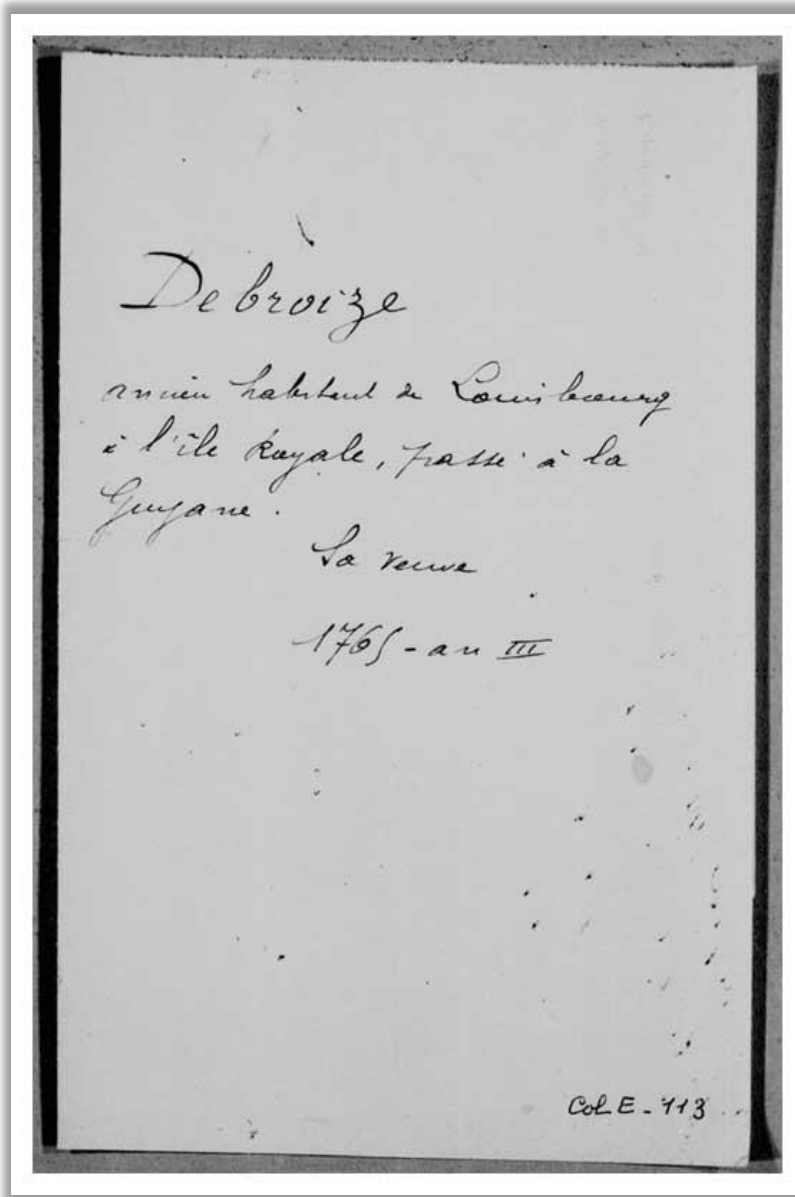 Debroize
ancien habitant de Louisbourg
à l'île Royale, passé à la
Guyane.
Sa veuve
1765 - an III
Col. E - 113